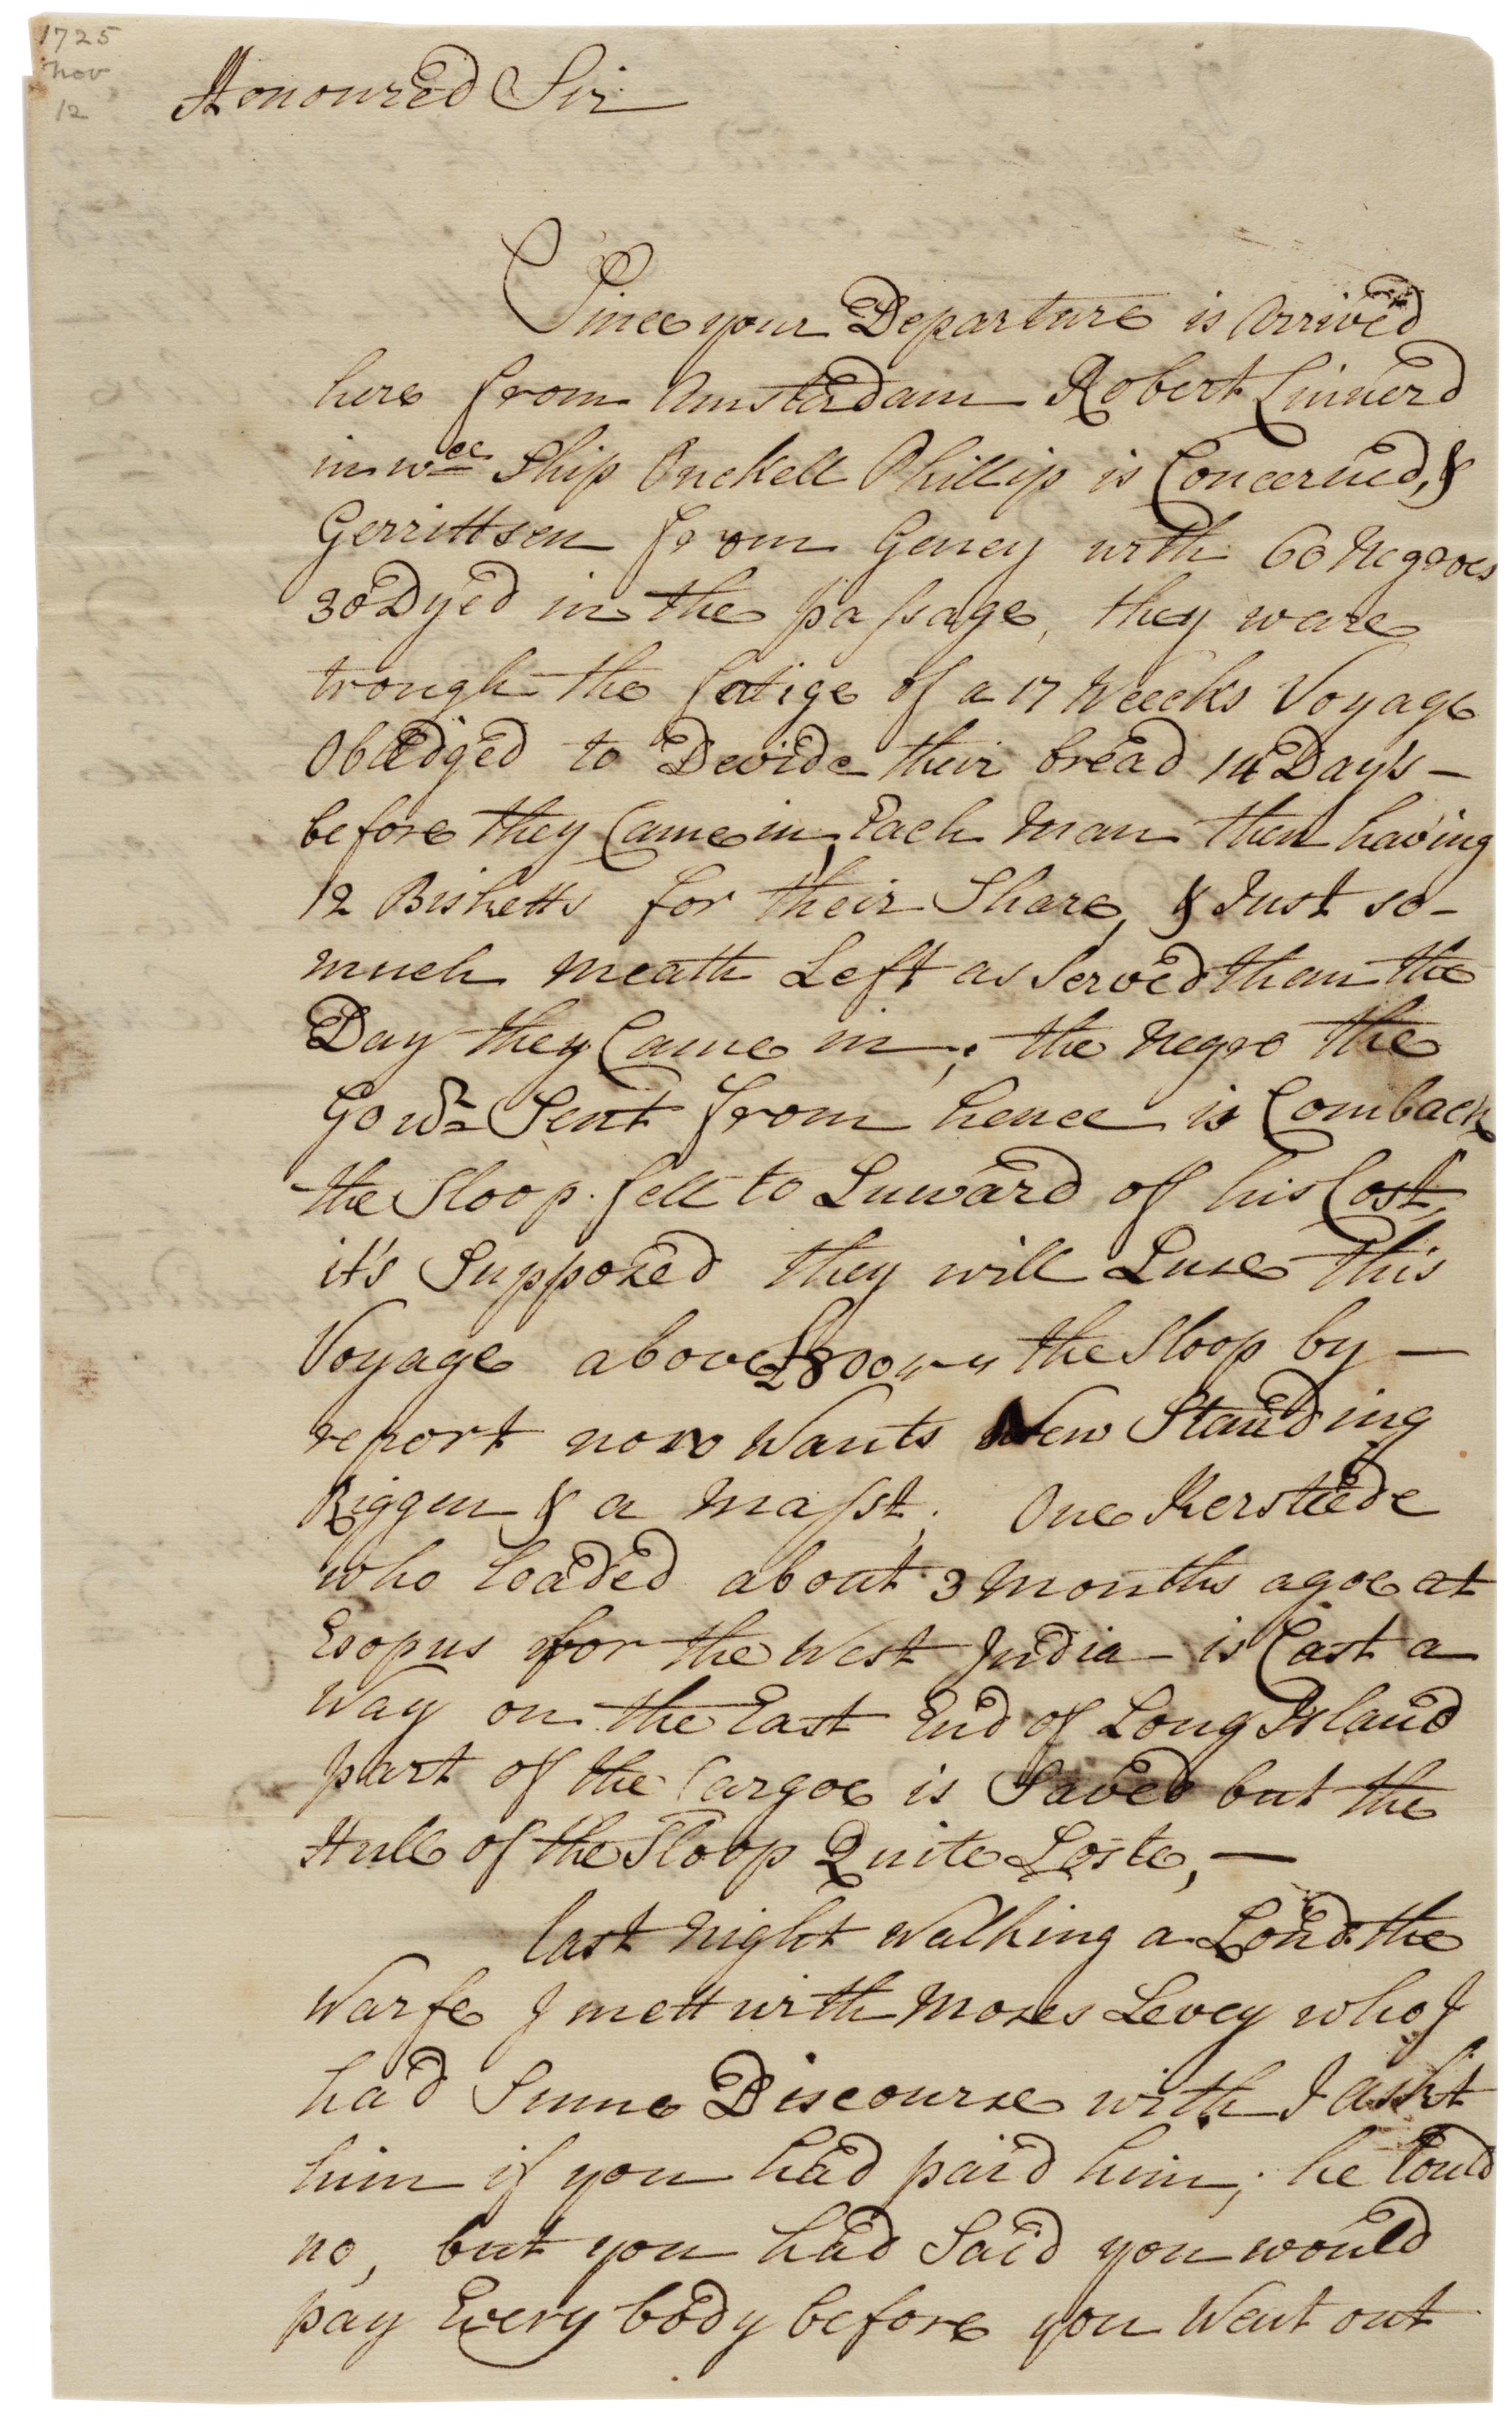 1725
Nov
12
Honoured Sir
Since your Departure is Arrived
here from Amsterdam Robert Linnerd
in wch Ship Onckell Phillip is Concerned, &
Gerrittsen from Geney with 60 Negroes
30 Dyed in the passage, they ware
trough the fatige of a 17 Weecks Voyage
Obledged to Devide their bread 14 Day's —
before they Came in, Each Man then having
12 Bisketts for their Share, & Just so-
much meath Left as Served them the
Day they Came in; the Negro the
Gowr Sent from hence is Comback
the Sloop fell to Luward of his Cost,
it's Supposed they will Luse this
Voyage above £800 „ „ the Sloop by —
report now Wants New Standing
Riggen & a Masst; One Kersteede
who Loaded about 3 Months agoe at
Esopus for the West India - is Cast a
Way on the East End of Long Island
part of the Cargoe is Saved but the
Hull of the Sloop Quite Loste, —
last Night Walking a Lond the
Warfe I mett with Moses Levey who I
had Sume Discourse with I askt
him if you had paid him; he tould
no, but you had Said you would
pay Every body before you Went out